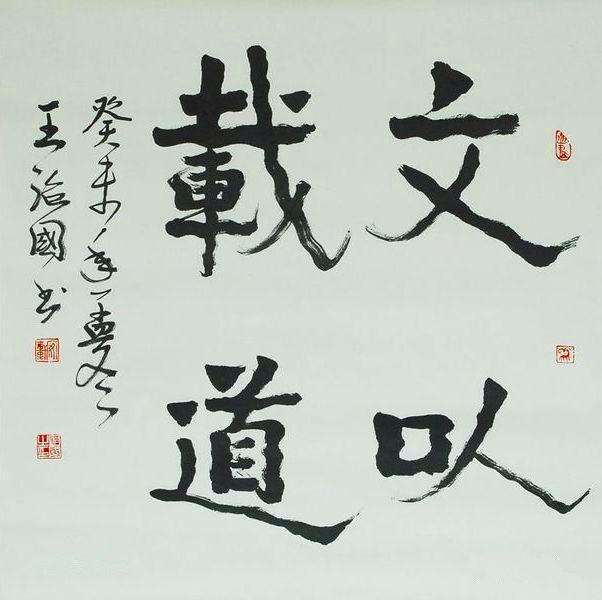 文以
載道
癸未年冬
王治國書